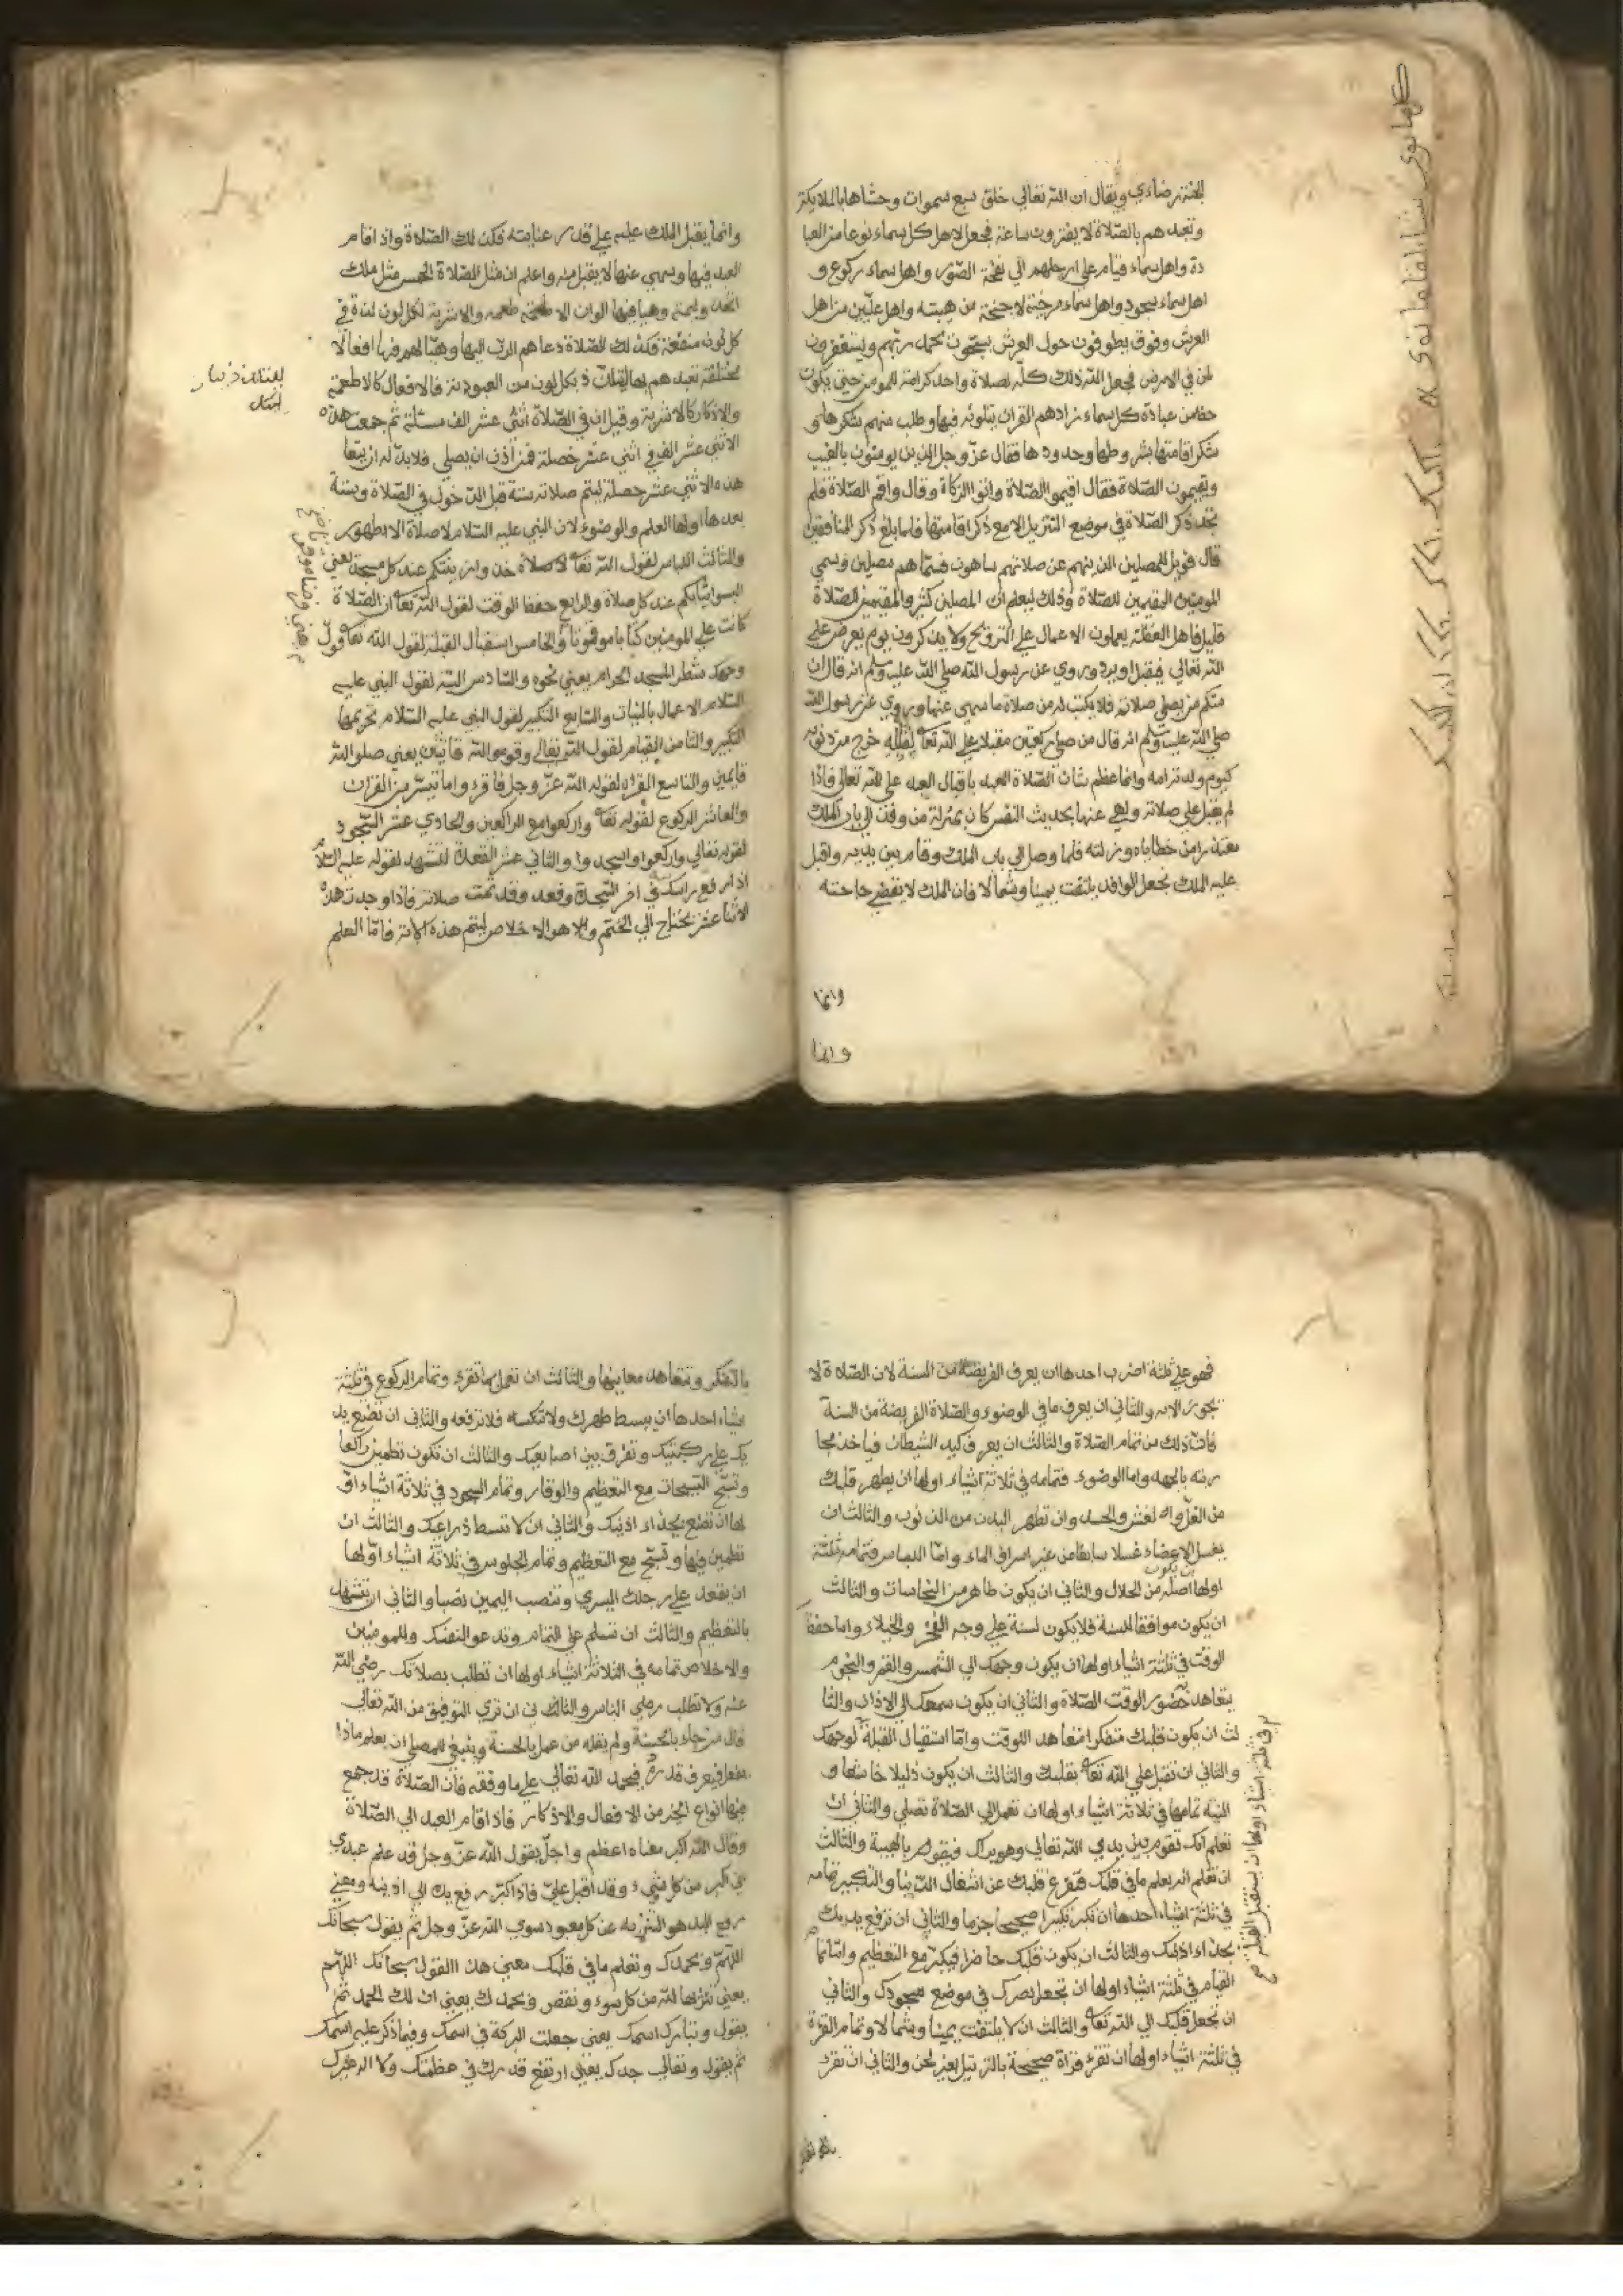 للجنة رضاءي ويقال ان الله تعالي خلق سبع سموات وحشاها بالملايكة
وتعبدهم بالصّلاة لا يفترون ساعة فجعل لاهل كل سماء نوعا من العبا
دة واهل سماء قيام علي ارجلهم الي نفخة الصّور واهل سماء ركوع و
اهل سماء سجود واهل سماء مرخية الاجنحة من هيبته واهل عليّين من اهل
العرش وقوف يطوفون حول العرش يسبّحون بحمد ربّهم ويستغفرون
لمن في الارض فجعل الله ذلك كلّه لصلاة واحد كرامة للمومن حتي يكون
حظ من عبادة كل سماء زادهم القران يتلونه فيها وطلب منهم شكرها و
شكر اقامتها بشروطها وحدودها فقال عزّ وجل الذين يومنون بالغيب
ويقيمون الصّلاة فقال اقيموا الصّلاة واتوا الزكاة وقال واقم الصّلاة فلم
نجد ذكر الصّلاة في موضع التنزيل الا مع ذكر اقامتها فلما بلغ ذكر المنافقين
قال فويل للمصلين الذين هم عن صلاتهم ساهون فسمّاهم مصلين وسمي
المومنين المقيمين للصّلاة وذلك ليعلم انّ المصلين كثير والمقيمين للصّلاة
قليل فاهل الغفلة يعملون الاعمال علي الترويج ولا يذكرون يوم يعرض علي
الله تعالي فيقبل او يرد وروي عن رسول الله صلي الله عليه وسلم انه قال ان
منكم من يصلي صلاته فلا يكتب له من صلاة ما سهي عنها وروي عن رسول الله
صلي الله عليه وسلم انه قال من صلي ركعتين مقبلا علي الله تعالى بقلبه خرج من ذنوبه
كيوم ولدته امه وانما عظم شان الصّلاة العبد باقبال العبد علي الله تعالى فاذا
لم يقبل علي صلاته ولهي عنها بحديث النفس كان بمنزلة من وفد الي باب الملك
معتذرا من خطاياه وزلته فلما وصل الي باب الملك وقام بين يديه واقبل
عليه الملك يجعل الوافد يلتفت يمينا وشمالا فان الملك لا يقضي حاجته
وانما
وانما
وانما يقبل الملك عليه علي قدر عنايته فكذلك الصّلاة واذا قام
العبد فيها وسهي عنها لا يقبل منه واعلم ان مثل الصّلاة الخمس مثل ملك
اتخذ وليمة وهيا فيها الوان الاطعمة طعمه والاشربة لكل لون لذة في
كل لون منفعة فكذلك الصّلاة دعاهم الربّ اليها وهيّا لهم فيها افعالا
مختلفة تعبدهم بها ليتلذّذ بكل لون من العبودية فالافعال كالاطعمة
والاذكار كالاشربة وقيل ان في الصّلاة اثني عشر الف مسئلة ثم جمعت هذه
الاثني عشر الف في اثني عشر خصلة فمن اذن ان يصلي فلا بدّ له ان يتعا
هذه الاثني عشر خصلة ليتم صلاته ستة قبل الدّخول في الصّلاة وستة
بعدها اولها العلم والوضوء لان النبي عليه السّلام لا صلاة الا بطهور
والثالث اللباس لقول الله تعالى لا صلاة خذوا زينتكم عند كل مسجد يعني
البسوا ثيابكم عند كل صلاة والرابع حفظ الوقت لقول الله تعالى ان الصّلاة
كانت علي المومنين كتابا موقوتا والخامس استقبال القبلة لقول الله تعالى فولّ
وجهك شطر المسجد الحرام يعني نحوه والسّادس النيّة لقول النبي عليه
السّلام الاعمال بالنيات والسّابع التكبير لقول النبي عليه السّلام تحريمها
التكبير والثامن القيام لقول الله تعالى وقوموا لله قانتين يعني صلوا لله
قايمين والتاسع القراة لقوله الله عزّ وجل فاقروا ما تيسّر من القران
والعاشر الركوع لقوله تعالى واركعوا مع الراكعين والحادي عشر السّجود
لقوله تعالي واركعوا واسجدوا والثاني عشر القعدة للتشهد لقوله عليه السّلام
اذا رفع راسك في اخر السّجدة وقعد وقد تمت صلاته فاذا وجدت هذه
الاثنا عشر يحتاج الي الختم والا هو الاخلاص ليتم هذه الاية فامّا العلم
فهو علي ثلثة اضرب احدها ان يعرف الفريضة من السنة لان الصّلاة لا
تجوز الا به والثاني ان يعرف ما في الوضوء والصّلاة الفريضة من السنة
فانّ ذلك من تمام الصّلاة والثالث ان يعرف كيد الشيطان فياخذ محا
ربته بالجهد واما الوضوء فتمامه في ثلاثة اشياء اولها ان يطهر قلبك
من الغلّ والغش والحسد وان تطهر البدن من الذنوب والثالث ان
يغسل الاعضاء غسلا سابغا من غير اسراف الماء وامّا اللباس فتمامه ثلثة
اولها ان يكون اصله من الحلال والثاني ان يكون طاهر من النجاسات والثالث
ان يكون موافقا للسنة فلا يكون لبسه علي وجه الفخر والخيلاء واما حفظ
الوقت في ثلثة اشياء اولها ان يكون وجهك الي الشمس والقمر والنجوم
يتعاهد حضور الوقت الصّلاة والثاني ان يكون سمعك الي الاذان والثا
لث ان يكون قلبك متفكرا متعاهد للوقت وامّا استقبال القبلة لوجهك
والثاني ان تقبل علي الله تعالى بقلبك والثالث ان يكون ذليلا خاشعا و
النيّة تمامها في ثلاثة اشياء اولها ان تعمل الي الصّلاة تصلي والثاني ان
تعلم انك تقوم بين يدي الله تعالي وهو يراك فيقوم بالهيبة والثالث
ان تعلم انه يعلم ما في قلبك فتفرغ قلبك عن اشغال الدّنيا والتكبير تمامه
في ثلثة اشياء احدها ان تكبر تكبيرا صحيحا جزما والثاني ان ترفع يديك
بحذاء اذنيك والثالث ان يكون قلبك حاضرا فيكبّر مع التعظيم وامّا تمام
القيام في ثلثة اشياء اولها ان تجعل بصرك في موضع سجودك والثاني
ان تجعل قلبك الي الله تعالى والثالث ان لا يلتفت يمينا وشمالا وتمام القراة
في ثلثة اشياء اولها ان تقرء قراة صحيحة بالترتيل بغير لحن والثاني ان تقرء
في ثلثة اشياء اولها ان يستقبل القبلة
بالتفكر وتتعاهد معانيها والثالث ان تعمل بما تقرء وتمام الركوع في ثلثة
اشياء احدها ان يبسط ظهرك ولا تنكسه فلا ترفعه والثاني ان تضع يد
يك علي ركبتيك وتفرق بين اصابعك والثالث ان تكون تطمين راكعا
وتسبّح التسبيحات مع التعظيم والوقار وتمام السجود في ثلاثة اشياء اوّ
لها ان تضع بحذاء اذنيك والثاني ان لا تبسط ذراعيك والثالث ان
تطمين فيها وتسبّح مع التعظيم وتمام الجلوس في ثلاثة اشياء اوّلها
ان يقعد علي رجلك اليسري وتنصب اليمين نصبا والثاني ان يتشهد
بالتعظيم والثالث ان تسلم علي التمام وتدعو لنفسك وللمومنين
والاخلاص تمامه في الثلاثة اشياء اولها ان تطلب بصلاتك رضي الله
عنه ولا تطلب رضي الناس والثالث في ان تري التوفيق من الله تعالى
قال من جاء بالحسنة ولم يقل من عمل بالحسنة وينبغي للمصلي ان يعلم ماذا
يفعل فيعرف قدره فيحمد الله تعالي علي ما وفقه فان الصّلاة قد جمع
فيها انواع الخير من الافعال والاذكار فاذا قام العبد الي الصّلاة
وقال الله اكبر معناه اعظم واجلّ يقول الله عزّ وجل قد علم عبدي
اني اكبر من كل شيء وقد اقبل عليّ فاذا كبّر رفع يديك الي اذنيه ومعني
رفع اليد هو التنزيه عن كل معبود سوي الله عزّ وجل ثم يقول سبحانك
اللّهم وبحمدك وتعلم ما في قلبك معني هذا القول سبحانك اللهم
يعني تنزيها لله من كل سوء ونقص وبحمدك يعني ان لك الحمد ثم
يقول وتبارك اسمك يعني جعلت البركة في اسمك وفيما ذكر عليه اسمك
ثم يقول وتعالى جدك يعني ارتفع قدرك في عظمتك ولا اله غيرك